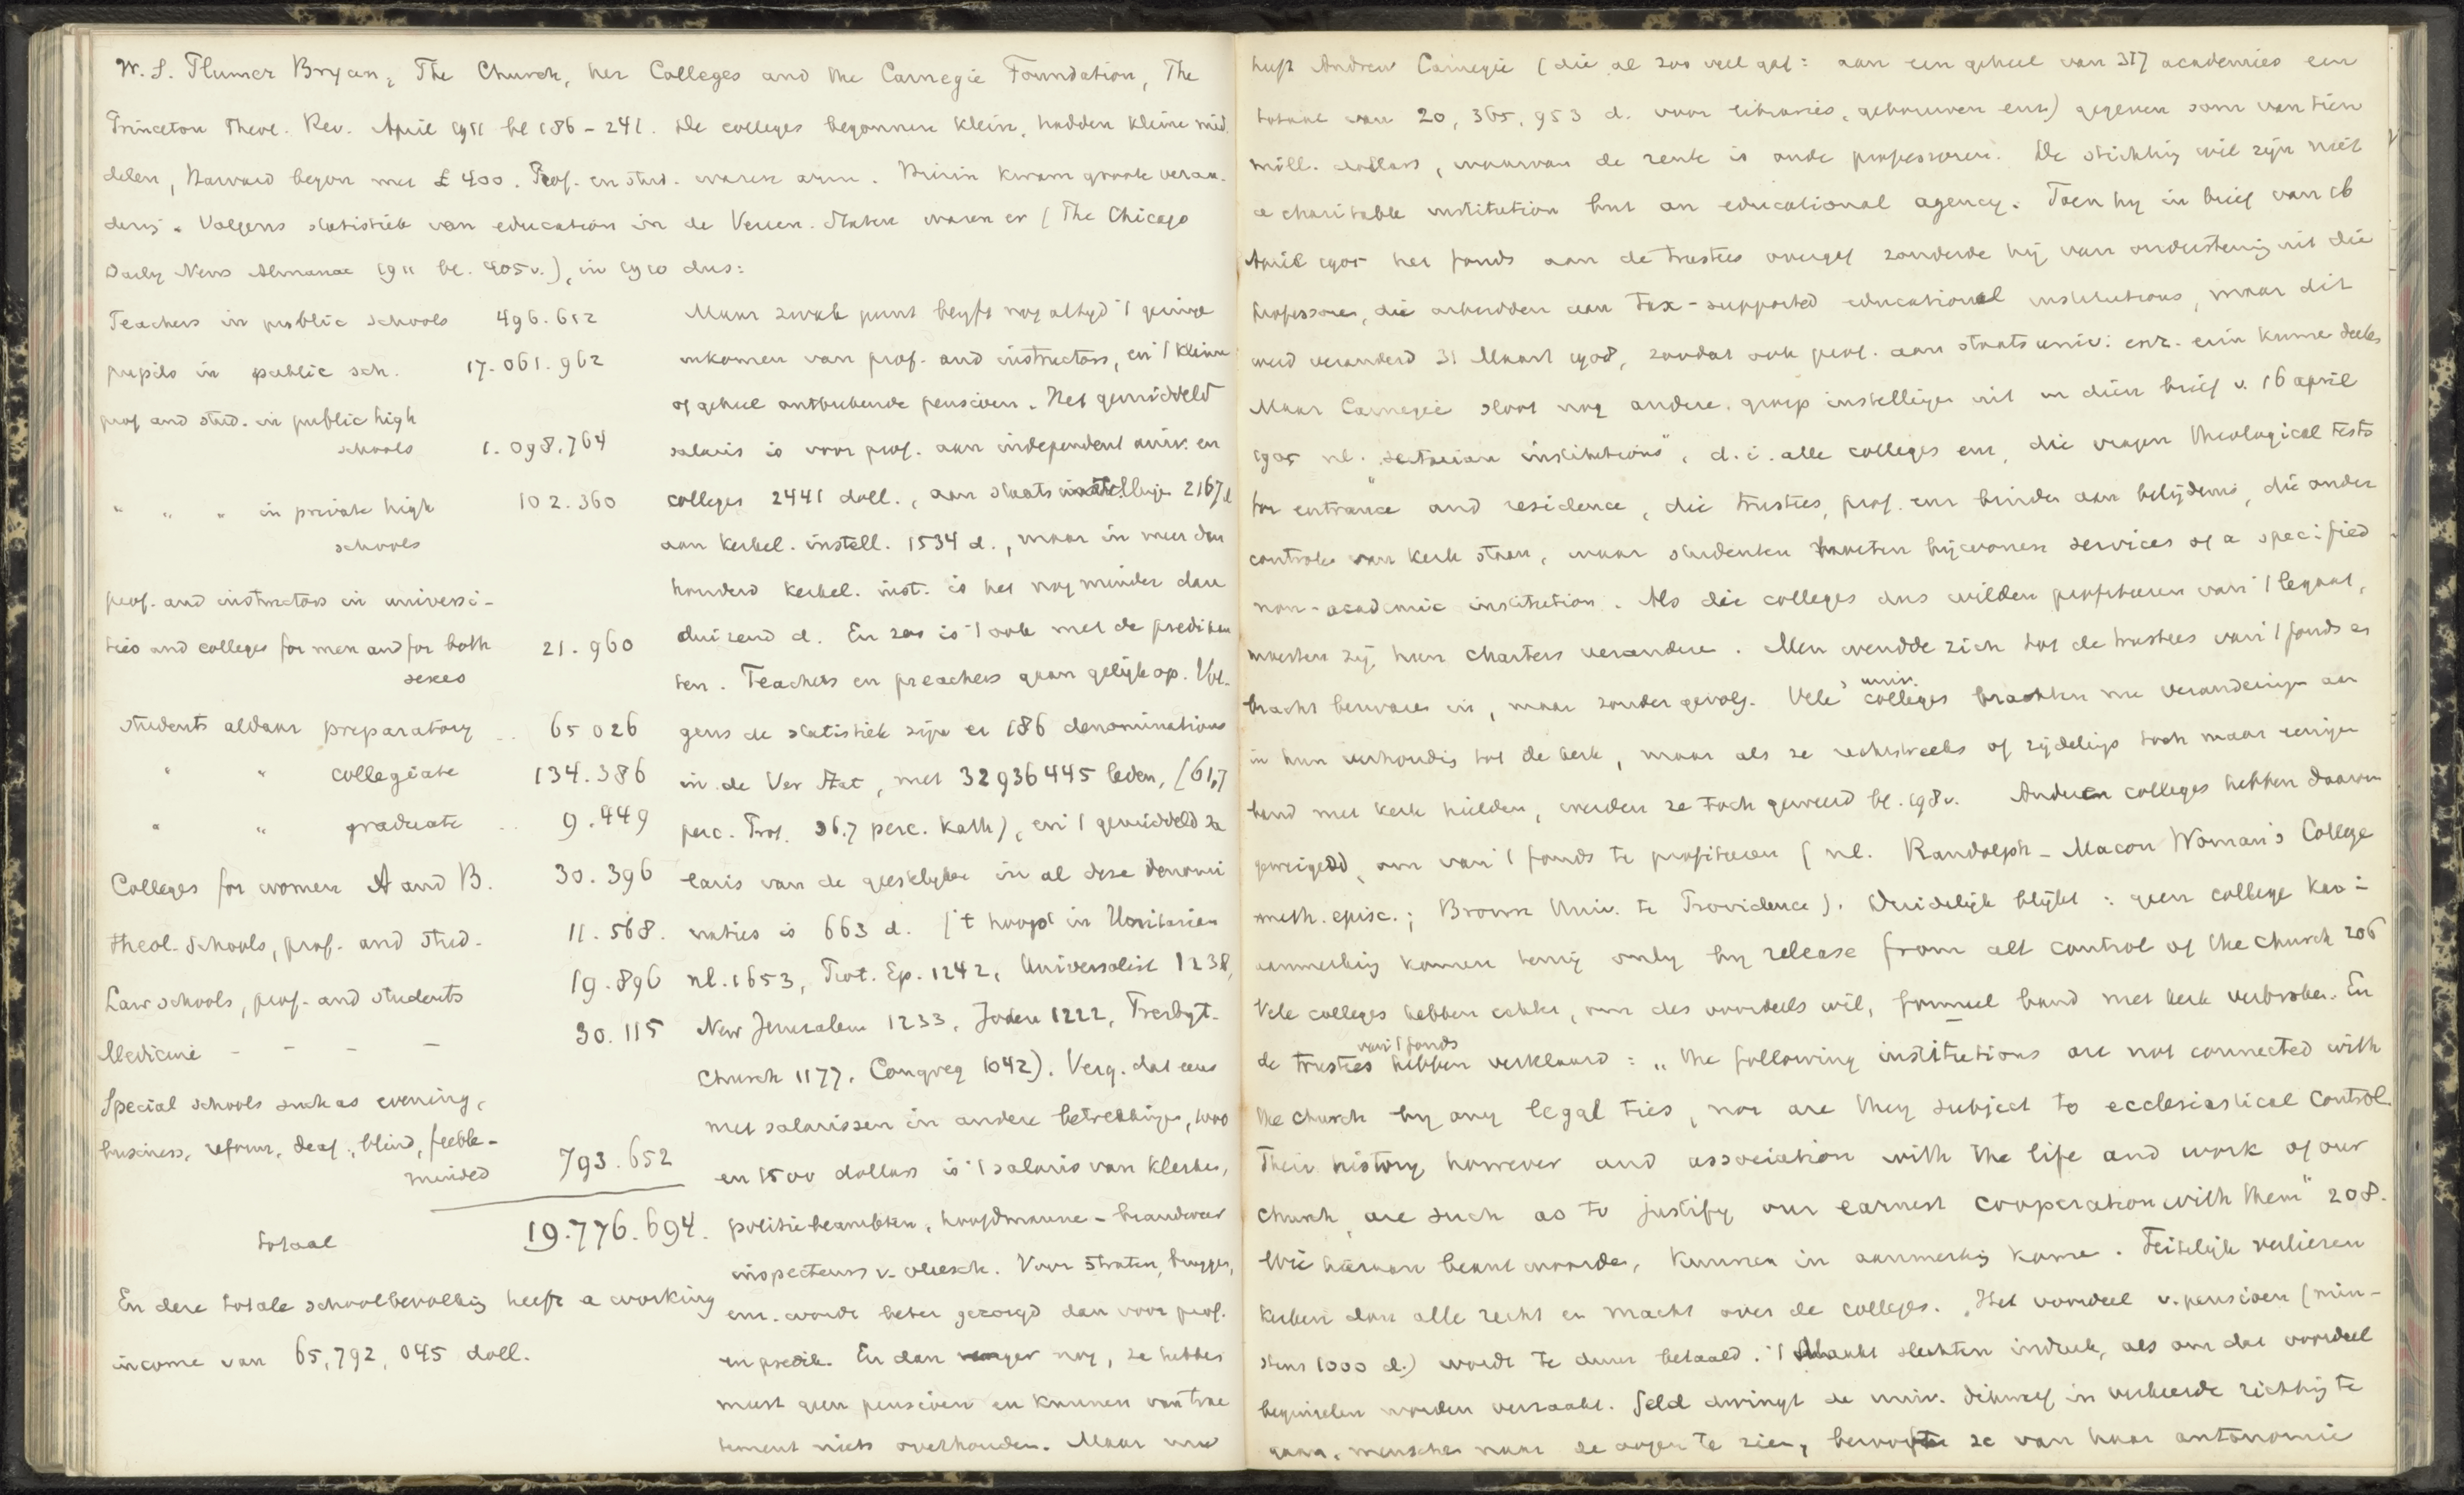 W. S. Plumer Bryan, The Church, her Colleges and the Carnegie Foundation, The
Princeton Theol. Rev. April 1911 bl 186-241. De colleges begonnen klein, hadden kleine mid-
delen, Harvard begon met £ 400. Prof. en stud. waren arm. Hierin kwam groote veran-
dering. Volgens statistiek van education in de Vereen. Staten waren er (The Chicago
Daily News Almanac 1911 bl. 405v.), in 1910 dus:
Teachers in public schools 496.612
pupils in public sch. 17.061.962
prof and stud. in public high
schools 1.098.764
" " " in private high 102.360
schools
prof. and instructors in universi-
ties and colleges for men and for both 21.960
sexes
students aldaar preparatory .. 65 026
" " collegiate 134.386
" " graduate .. 9.449
Colleges for women A and B. 30.396
theol. Schools, prof. and stud. 11.568.
Law schools, prof. and students 19.896
Medicine - - - - 30.115
Special schools such as evening,
business, reform, deaf, blind, feeble-
minded 793.652
totaal 19.776.694.
En deze totale schoolbevolking heeft a working
income van 65,792,045 doll.
Maar zwak punt blijft nog altijd 't geringe
inkomen van prof. and instructors, en 't kleine
of geheel ontbrekende pensioen. Het gemiddeld
salaris is voor prof. aan independent univ. en
colleges 2441 doll., aan staats instellingen 2167 d
aan kerkel. instell. 1534 d., maar in meer dan
honderd kerkel. inst. is het nog minder dan
duizend d. En zoo is 't ook met de predikan
ten. Teachers en preachers gaan gelijk op. Vol-
gens de statistiek zijn er 186 denominations
in de Ver Stat, met 32936445 leden, (61,7
perc. Prot. 36.7 perc. Kath), en 't gemiddeld sa
laris van de geestelijke in al deze denomi
naties is 663 d. ('t hoogst in Unitarian
nl. 1653, Prot. Ep. 1242, Universalist 1238,
New Jerusalem 1233, Joden 1222, Presbyt.
Church 1177, Congreg 1042). Verg. dat eens
met salarissen in andere betrekkingen, 1000
en 1500 dollars is 't salaris van klerken,
politiebeambten, hoofdmannen-brandweer
inspecteurs v. vleesch. Voor straten, bruggen,
enz. wordt beter gezorgd dan voor prof.
en predik. En dan nog, ze hebben
meest geen pensioen en kunnen van trac
tement niets overhouden. Maar nu
heeft Andrew Carnegie (die al zoo veel gaf: aan een geheel van 317 academies een
totaal van 20,365,953 d. voor libraries, gebouwen enz) gegeven som van tien
mill. dollars, waarvan de rente is oude professoren. De stichting wil zijn niet
a charitable institution but an educational agency. Toen hij in brief van 16
April 1905 het fonds aan de trustees overgaf zonderde hij van ondersteuning uit die
professoren, die arbeidden aan tax-supported educational institutions, maar dit
werd veranderd 31 Maart 1908, zoodat ook prof. aan staatsuniv. enz. erin kunnen deelen
Maar Carnegie sloot nog andere groep instellingen uit in dien brief v. 16 april
1905 nl. "sectarian institutions", d.i. alle colleges enz, die vragen theological tests
for entrance and residence, die trustees, prof. enz binden aan belijdenis, die onder
controle van kerk staan, waar studenten moeten bijwonen services of a specified
non-academic institution. Als die colleges dus wilden profiteeren van 't legaat,
moesten zij hun charters veranderen. Men wendde zich tot de trustees van 't fonds en
bracht bezwaren in, maar zonder gevolg. Vele univ. colleges brachten nu veranderingen aan
in hun verhouding tot de kerk, maar als ze rechtstreeks of zijdelings toch maar eenigen
band met kerk hielden, werden ze toch geweerd bl. 198v. Andere colleges hebben daarom
geweigerd, om van 't fonds te profiteeren (nl. Randolph-Macon Woman's College
meth. episc.; Brown Univ. te Providence). Duidelijk blijkt: geen college kan in
aanmerking komen tenzij only by release from all control of the church 206
Vele colleges hebben echter, om des voordeels wil, formeel band met kerk verbroken. En
de trustees van 't fonds hebben verklaard: "the following institutions are not connected with
the church by any legal ties, nor are they subject to ecclesiastical control.
Their history however and association with the life and work of our
church, are such as to justify our earnest cooperation with them" 208.
Wie hieraan beantwoorden, kunnen in aanmerking komen. Feitelijk verliezen
kerken dan alle recht en macht over de colleges. Het voordeel v. pensioen (min-
stens 1000 d.) wordt te duur betaald. 't Maakt slechten indruk, als om dat voordeel
beginselen worden verzaakt. Geld dwingt de univ. dikwerf in verkeerde richting te
gaan, menschen naar de oogen te zien, berooft ze van haar autonomie